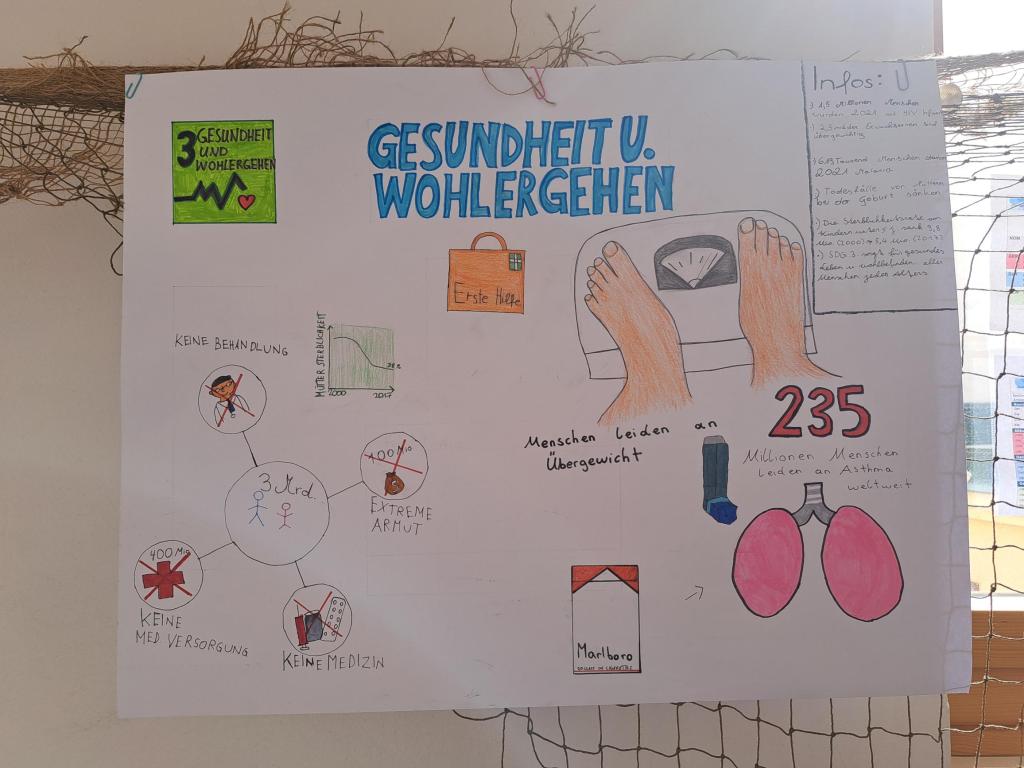 3 GESUNDHEIT
UND
WOHLERGEHEN
GESUNDHEIT U.
WOHLERGEHEN
Infos:
1,5 Millionen Menschen
wurden 2021 mit HIV
übergewichtig
Tausend Menschen
2021 Malaria
Todesfälle von Müttern
bei der Geburt sanken
Die Sterblichkeitsrate von
Kindern unter 5 J. sank 9,8
Mio. (2000) → 5,4 Mio. (2017)
SDG 3 sorgt für gesundes
Leben u wohlbefinden aller
Menschen jedes Alters
Erste Hilfe
MÜTTER STERBLICHKEIT
2000 2017
KEINE BEHANDLUNG
3 Mrd.
400 Mio
EXTREME
ARMUT
400 Mio
KEINE
MED. VERSORGUNG
KEINE MEDIZIN
Menschen leiden an
Übergewicht
235
Millionen Menschen
leiden an Asthma
weltweit
Marlboro